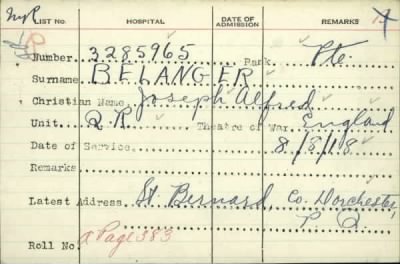 NyR
LIST NO. HOSPITAL DATE OF ADMISSION REMARKS
R
Number 3285965 Rank Pte.
Surname BELANGER
Christian Name Joseph Alfred
Unit Q.R. Theatre of War England
Date of Service 8/8/18
Remarks
Latest Address St. Bernard, Co. Dorchester,
P. Q.
Roll No. a Page 383